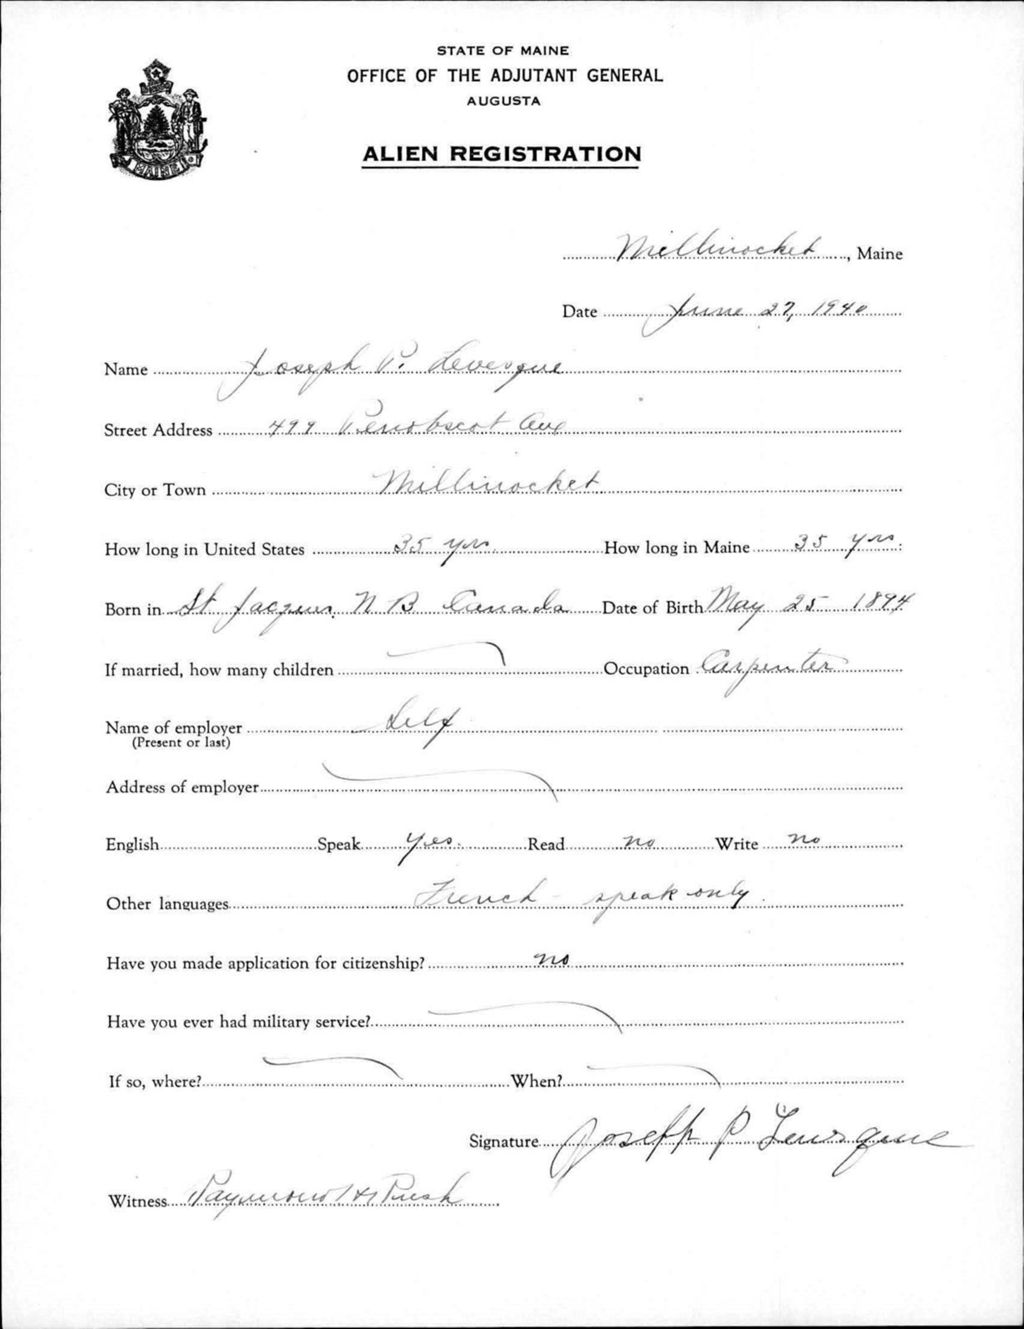 STATE OF MAINE
OFFICE OF THE ADJUTANT GENERAL
AUGUSTA
ALIEN REGISTRATION
MAINE
Millinocket, Maine
Date June 27, 1940
Name Joseph P. Levesque
Street Address 499 Penobscot Ave
City or Town Millinocket
How long in United States 35 yrs. How long in Maine 35 yrs.
Born in St Jacques N B Canada Date of Birth May 25 1894
If married, how many children Occupation Carpenter
Name of employer Self
(Present or last)
Address of employer
English Speak yes. Read no Write no
Other languages French - speak only.
Have you made application for citizenship? no
Have you ever had military service?
If so, where? When?
Signature Joseph P Levesque
Witness Raymond H Rush